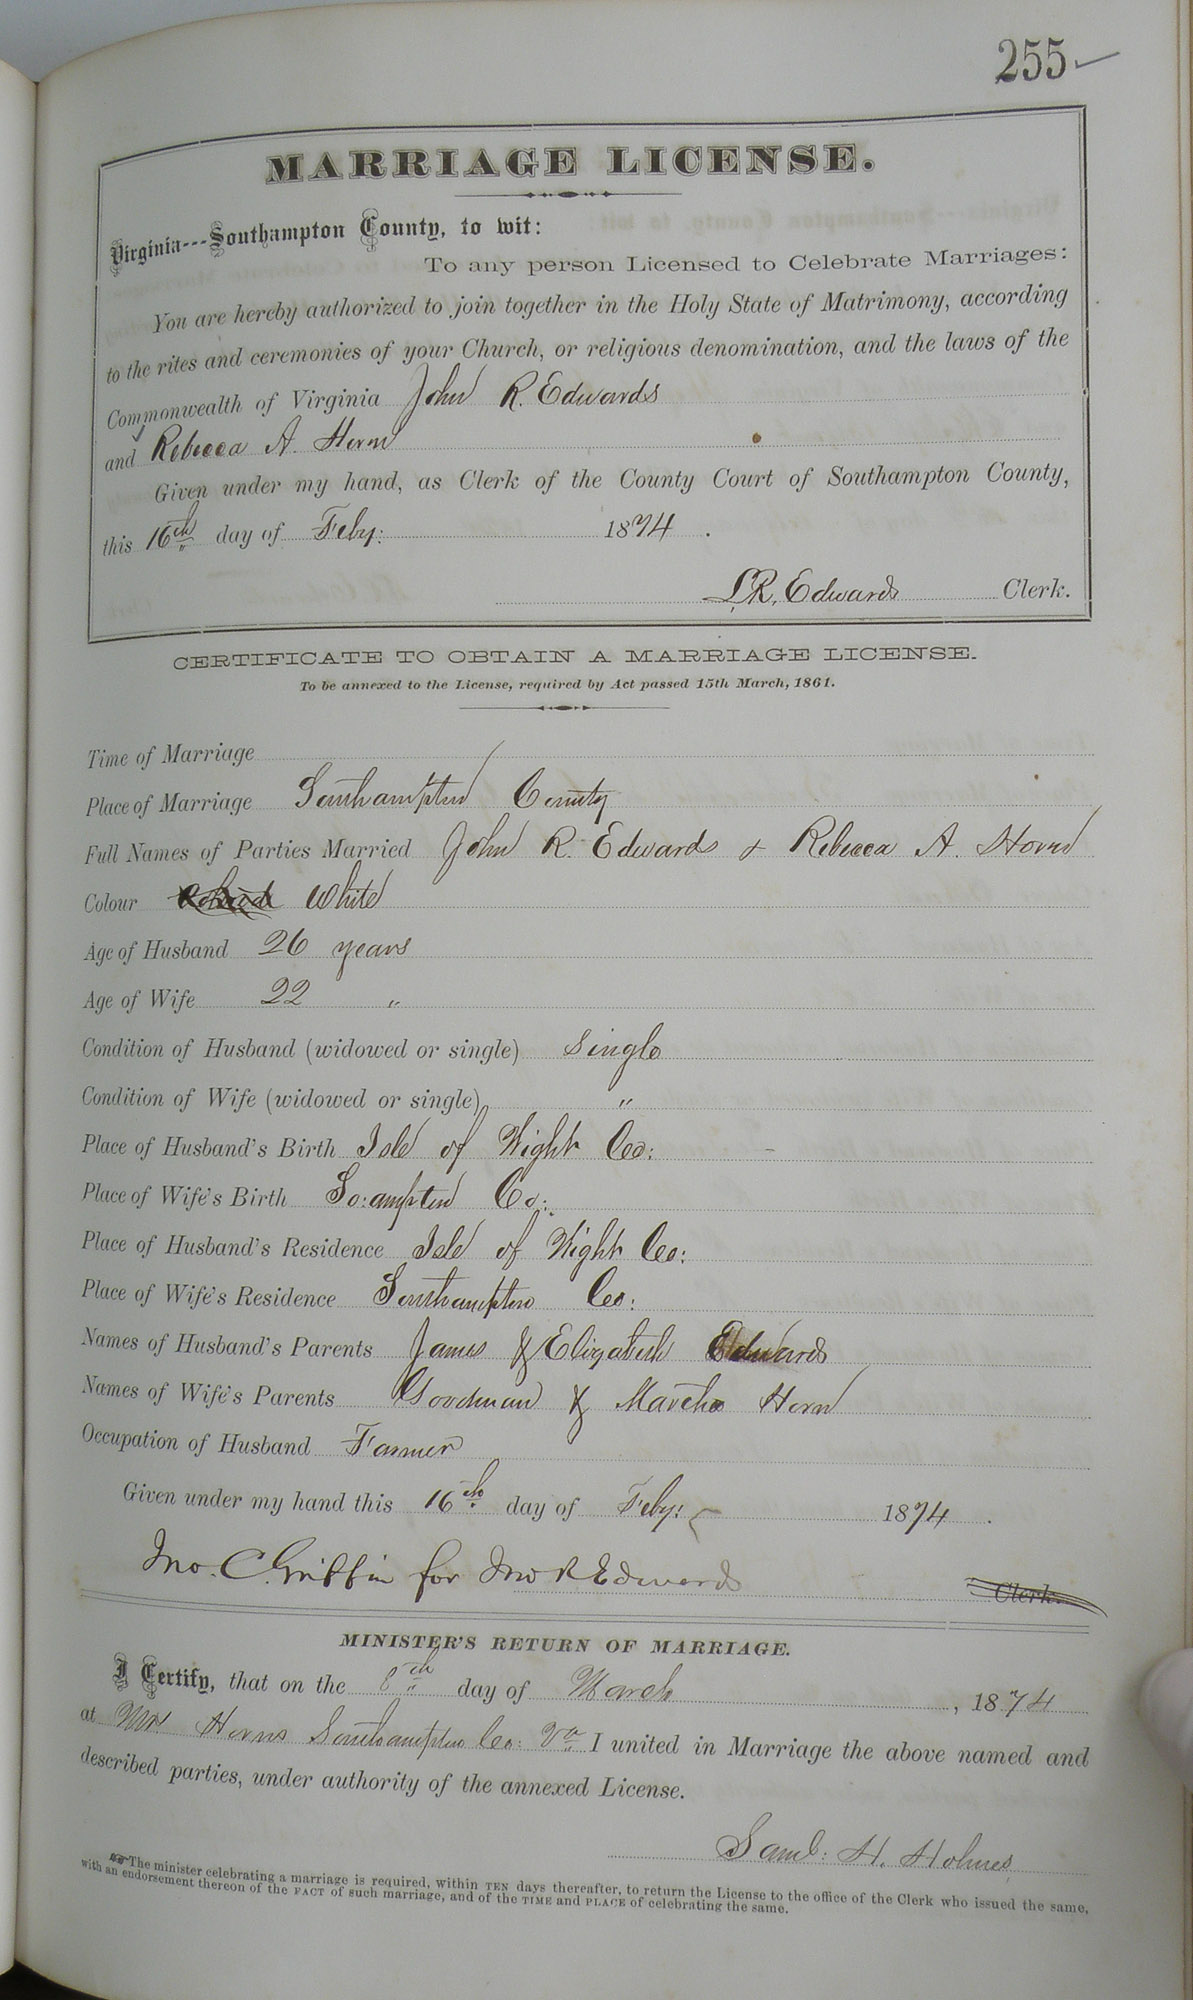 255
MARRIAGE LICENSE.
Virginia---Southampton County, to wit:
To any person Licensed to Celebrate Marriages:
You are hereby authorized to join together in the Holy State of Matrimony, according
to the rites and ceremonies of your Church, or religious denomination, and the laws of the
Commonwealth of Virginia John R. Edwards
and Rebecca A. Horn
Given under my hand, as Clerk of the County Court of Southampton County,
this 16th day of Feby: 1874.
L.R. Edwards Clerk.
CERTIFICATE TO OBTAIN A MARRIAGE LICENSE.
To be annexed to the License, required by Act passed 15th March, 1861.
Time of Marriage
Place of Marriage Southampton County
Full Names of Parties Married John R. Edwards & Rebecca A. Horn
Colour White
Age of Husband 26 years
Age of Wife 22 "
Condition of Husband (widowed or single) Single
Condition of Wife (widowed or single) "
Place of Husband's Birth Isle of Wight Co:
Place of Wife's Birth So:ampton Co:
Place of Husband's Residence Isle of Wight Co:
Place of Wife's Residence Southampton Co:
Names of Husband's Parents James & Elizabeth Edwards
Names of Wife's Parents Goodman & Martha Horn
Occupation of Husband Farmer
Given under my hand this 16th day of Feby: 1874.
Jno. C. Griffin for Jno R Edwards Clerk.
MINISTER'S RETURN OF MARRIAGE.
I Certify, that on the 8th day of March, 1874
at Mr Horns Southampton Co: Va I united in Marriage the above named and
described parties, under authority of the annexed License.
Saml: H. Holmes
The minister celebrating a marriage is required, within TEN days thereafter, to return the License to the office of the Clerk who issued the same,
with an endorsement thereon of the FACT of such marriage, and of the TIME and PLACE of celebrating the same.